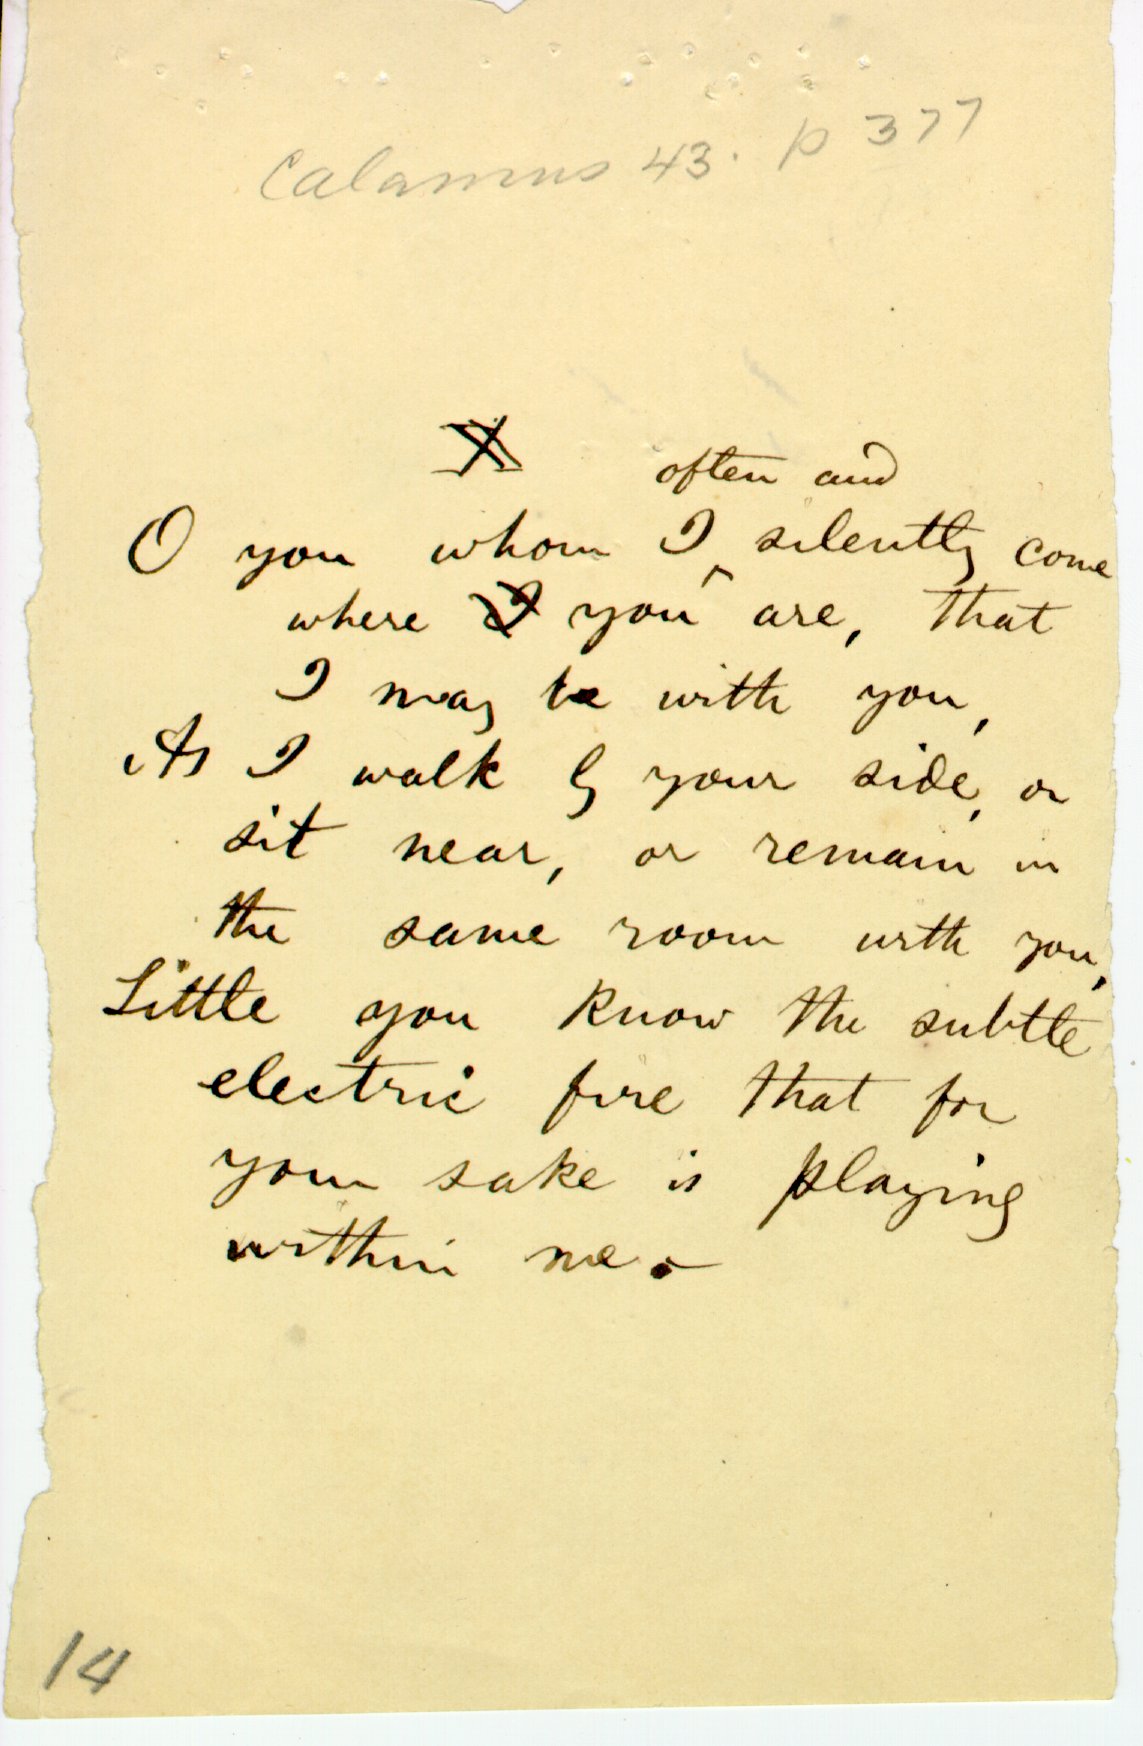 Calamus 43. p 377
X
often and
O you whom I ^ silently come
where I you are, that
I may be with you,
As I walk by your side, or
sit near, or remain in
the same room with you,
Little you know the subtle
electric fire that for
your sake is playing
within me.—
14